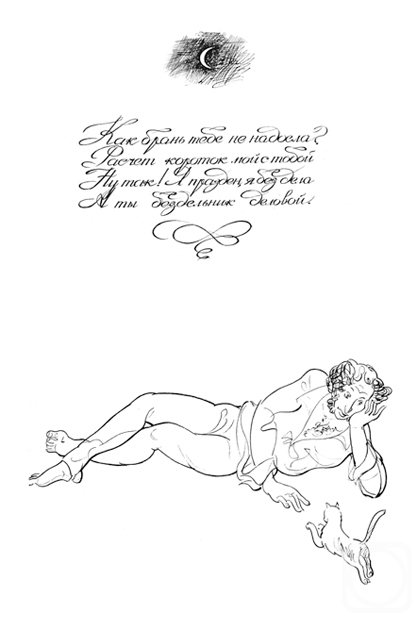 Как брань тебе не надоела?
Расчет короток мой с тобой
Ну так! Я празден, я без дела
А ты бездельник деловой.